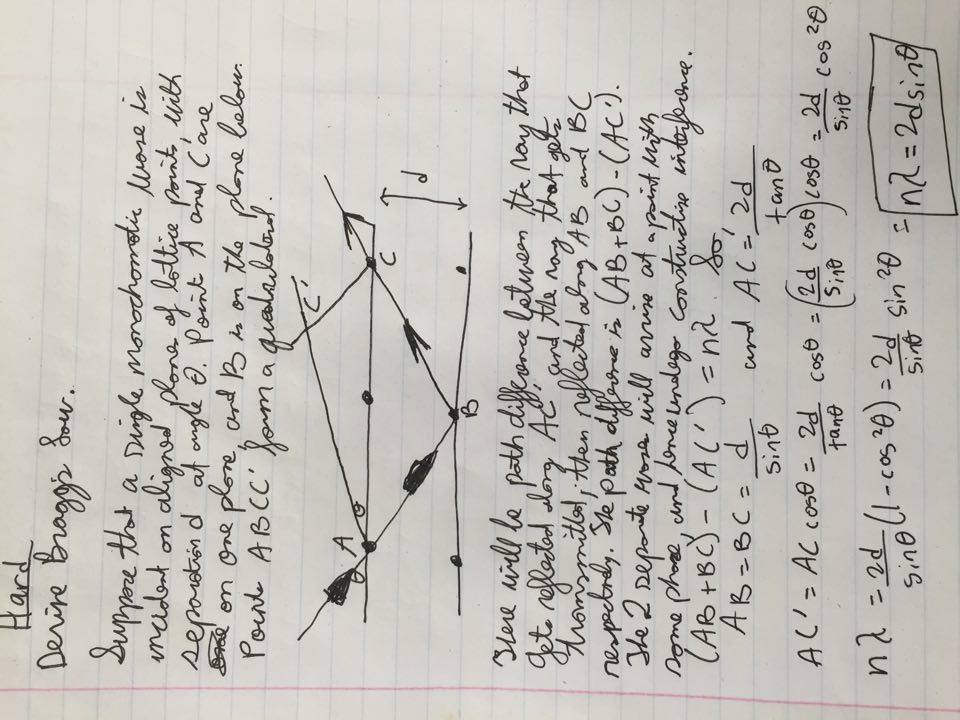 Hard
Derive Bragg's Law.
Suppose that a single monochromatic wave is
incident on aligned planes of lattice points, with
separation d at angle θ. Points A and C are
on one plane and B is on the plane below.
Points ABCC' form a quadrilateral.
A
θ
C'
C
d
B
There will be path difference between the ray that
gets reflected along AC', and the ray that gets
transmitted, then reflected along AB and BC
respectively. The path difference is (AB+BC)-(AC').
The 2 separate waves will arrive at a point with
same phase, and hence undergo constructive interference.
(AB+BC)-(AC') = nλ. So,
AB=BC = d/sinθ and AC = 2d/tanθ
AC' = AC cosθ = 2d/tanθ cosθ = (2d/sinθ cosθ) cosθ = 2d/sinθ cos²θ
nλ = 2d/sinθ (1-cos²θ) = 2d/sinθ sin²θ = nλ = 2d sinθ